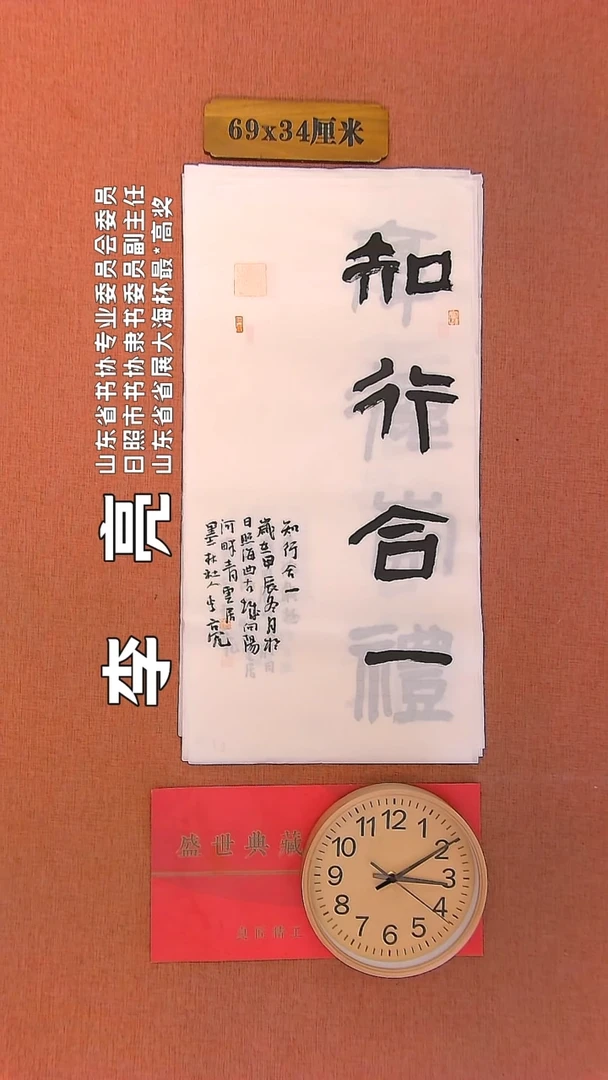 69x34厘米
知行合一
知行合一
歲在甲辰冬月於
日照海曲古城向陽
河畔青雲居
墨林社人李亮
山东省书协专业委员会委员
日照市书协隶书委员副主任
山东省省展大海杯最*高奖
李亮
盛世典藏
12
1
2
3
4
5
6
7
8
9
10
11